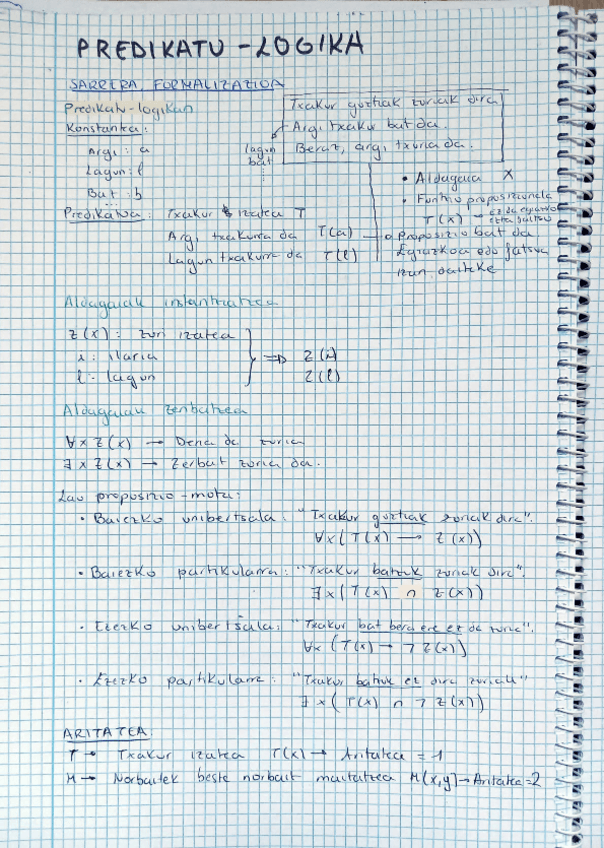 PREDIKATU-LOGIKA
SARRERA, FORMALIZATIOA
Predikatu-logikan
Txakur guztiak zuriak dira
Argi txakur bat da.
Beraz, argi txuria da.
Konstantea:
Argi: a
Lagun: l
Bat: b
...
lagun
bat
• Aldagaia X
• Funtzio proposizionala
T(x) →
o Proposizio bat da
Egiazkoa edo faltsua
izan daiteke
Predikatua: Txakur izatea T
Argi txakurra da T(a)
Lagun txakurra da T(l)
Aldagaiak instantziatzea
Z(x): zuri izatea
i: ilaria
l: lagun
⇒ Z(i)
Z(l)
Aldagaiak zenbatzea
∀x Z(x) → Dena da zuria
∃x Z(x) → Zerbait zuria da.
Lau proposizio-mota:
• Baiezko unibertsala: "Txakur guztiak zuriak dira".
∀x (T(x) → Z(x))
• Baiezko partikularra: "Txakur batzuk zuriak dira".
∃x (T(x) ∩ Z(x))
• Ezezko unibertsala: "Txakur bat bera ere ez da zuria".
∀x (T(x) → ¬Z(x))
• Ezezko partikularra: "Txakur batzuk ez dira zuriak"
∃x (T(x) ∩ ¬Z(x))
ARITATEA
T → Txakur izatea T(x) → Aritatea = 1
M → Norbaitek beste norbait maitatzea M(x,y) → Aritatea = 2